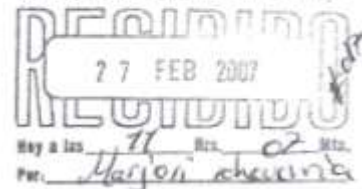 RECIBIDO
27 FEB 2007
Hoy a las 11 Hrs. 07 Mts.
Por: Marjori